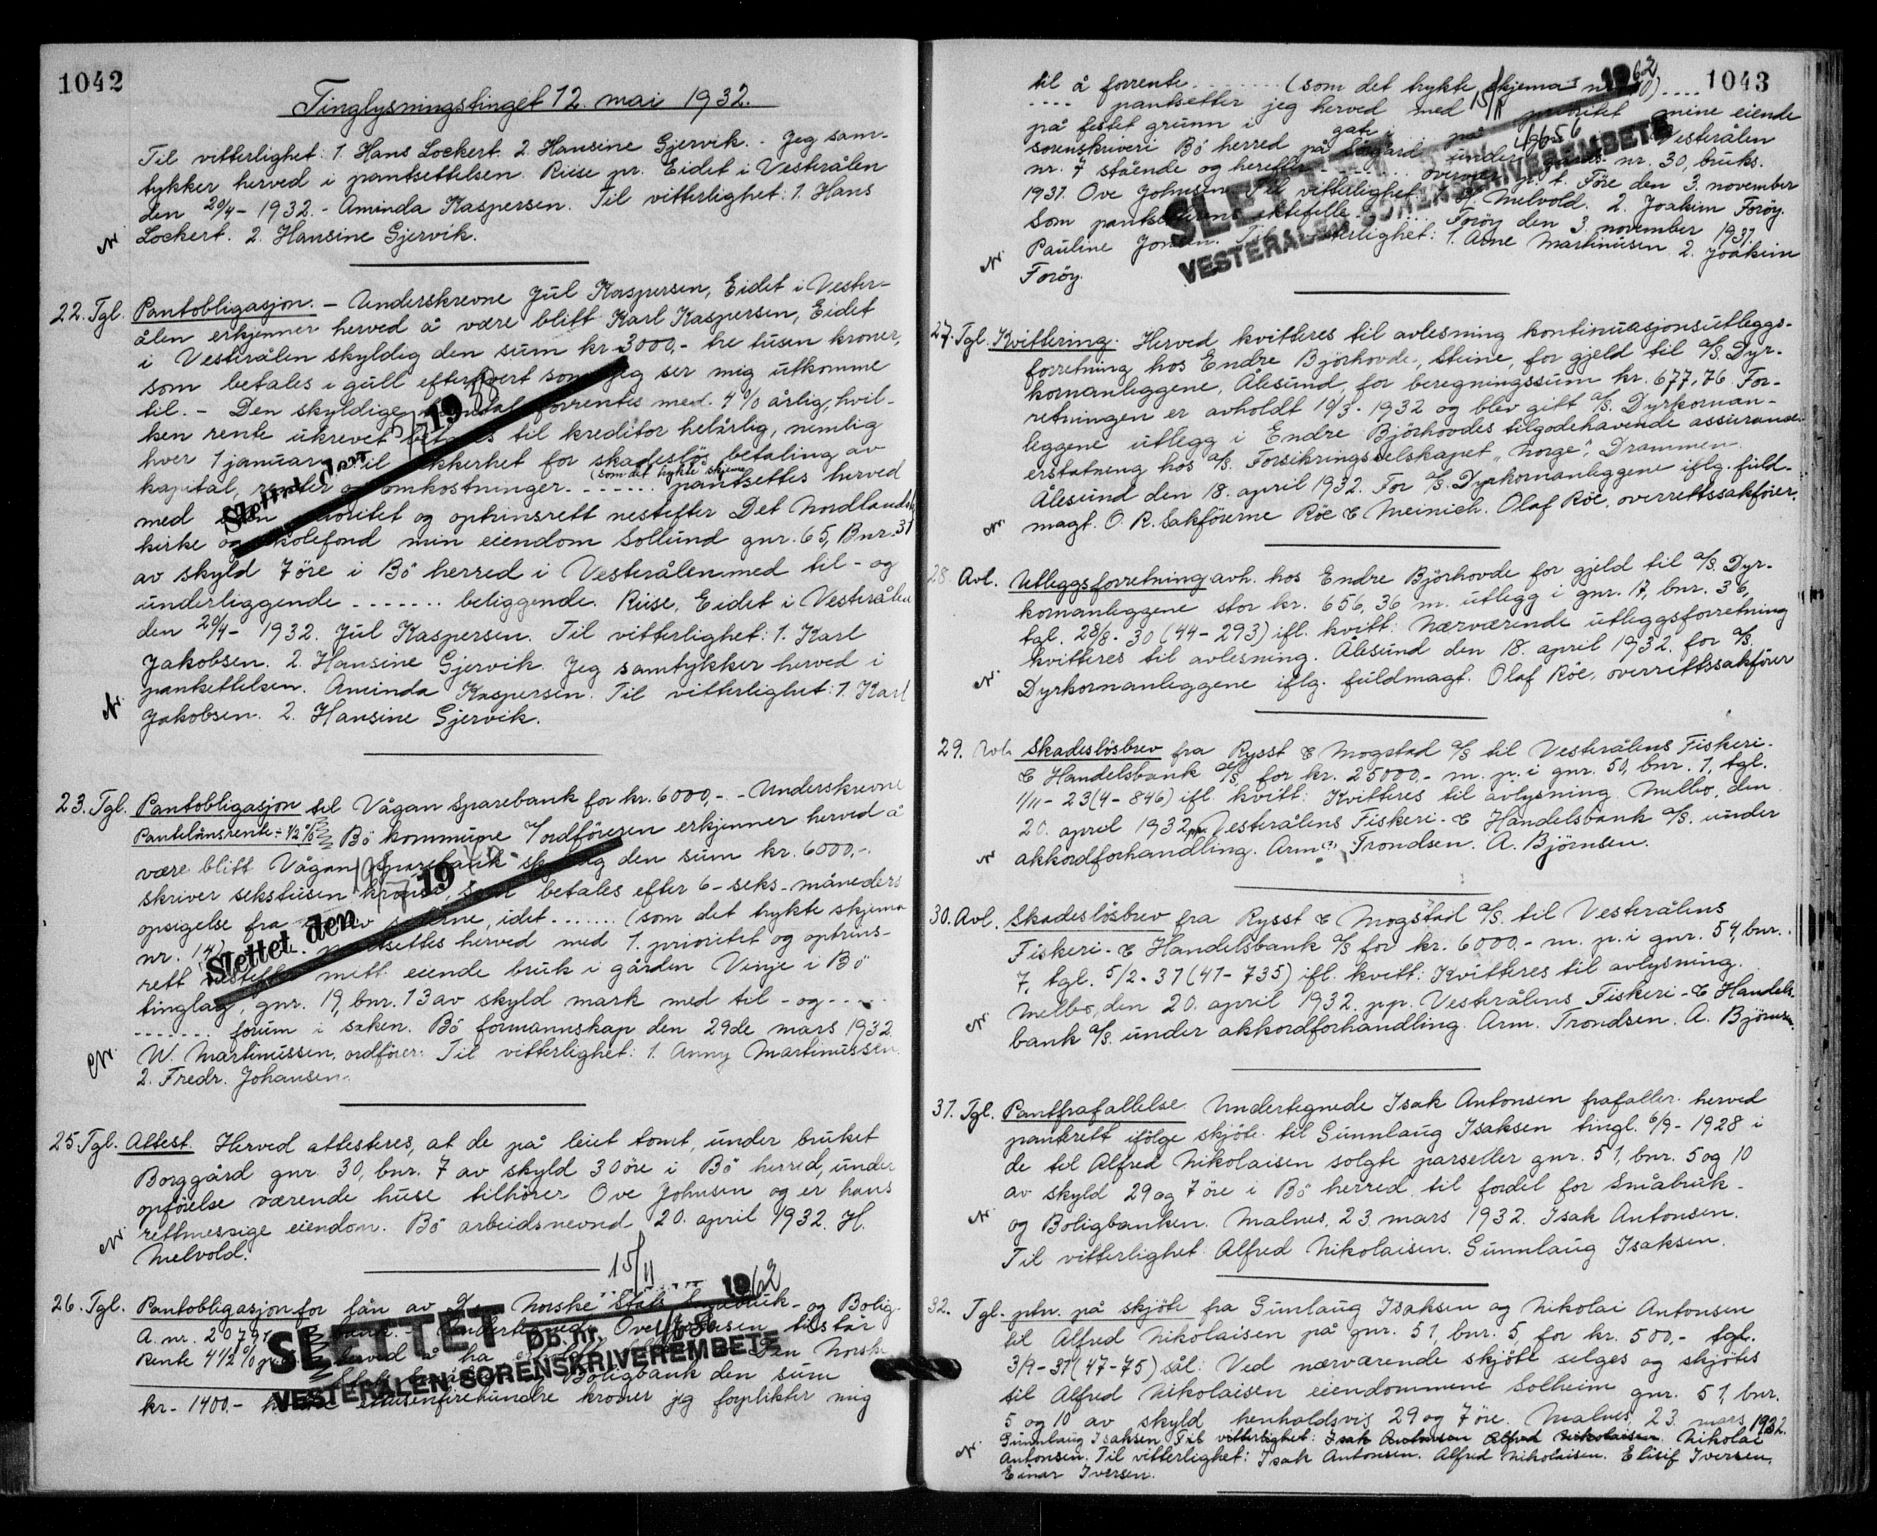 1042
Tinglysningstinget 12. mai 1932.
Til vitterlighet: 1. Hans Lockert. 2. Hansine Gjervik. - Jeg sam-
tykker herved i pantsettelsen. Riise pr. Eidet i Vesterålen
den 20/4 - 1932. - Aminda Kaspersen. Til vitterlighet: 1. Hans
Lockert. 2. Hansine Gjervik.
22. Tgl. Pantobligasjon. - Underskrevne Jul Kaspersen, Eidet i Vester-
ålen erkjenner herved å være blitt Karl Kaspersen, Eidet
i Vesterålen skyldig den sum kr 3000,- tre tusen kroner,
som betales i gull efterhvert som jeg ser mig utkomme
til. - Den skyldige forrentes med 4% årlig, hvil-
ken rente ukrevet betales til kreditor helårlig, nemlig
hver 1 januar. Til sikkerhet for skadesløs betaling av
kapital, renter og omkostninger. - - - - - (som det trykte skjema) pantsettes herved
med prioritet og optrinsrett nestefter Det Nordlandske
kirke og skolefond min eiendom Sollund gnr. 65, Bnr. 31
av skyld 7 öre i Bö herred i Vesterålen med til - og
underliggende - - - - - - - beliggende. Riise, Eidet i Vesterålen
den 20/4 - 1932. Jul Kaspersen. Til vitterlighet: 1. Karl
Jakobsen. 2. Hansine Gjervik. Jeg samtykker herved i
pantsettelsen. Aminda Kaspersen. Til vitterlighet: 1. Karl
Jakobsen. 2. Hansine Gjervik.
Slettet den 19
23. Tgl. Pantobligasjon til Vågan Sparebank for kr. 6000,- - Underskrevne
Pantelånsrente ÷ 1/2 % Bö kommune v/ordföreren erkjenner herved å
være blitt Vågan Sparebank skyldig den sum kr. 6000,-
skriver sekstusen kroner, som betales efter 6 - seks - måneders
opsigelse fra en av sidene, idet - - - - - - (som det trykte skjema
nr. 14) pantsettes herved med 1. prioritet og optrins-
rett nestefter mitt eiende bruk i gården Vinje i Bö
tinglag, gnr. 19, bnr. 13 av skyld mark med til - og - - - -
- - - - - - - forum i saken. Bö formannskap den 29de mars 1932
W. Martinussen, ordförer. Til vitterlighet: 1. Anny Martinussen.
2. Fredr. Johansen.
Slettet den 19
25. Tgl. Attest. Herved attesteres, at de på leiet tomt, under bruket
Borggård gnr. 30, bnr. 7 av skyld 30 öre i Bö herred, under
opförelse værende huse tilhörer Ove Johnsen og er hans
rettmessige eiendom. Bö arbeidsnevnd 20. april 1932. H.
Melvold.
15/11 1962
26. Tgl. Pantobligasjon for lån av Den Norske Stats Småbruk - og Bolig-
A. nr. 20791 bank. - Undertegnede Ove Johnsen tilstår
Rente 4 1/2 % herved å ha Den Norske
Boligbank den sum
kr - 1400.- tusenfirehundre kroner jeg forplikter mig
SLETTET Db.nr. 4656
VESTERÅLEN SORENSKRIVEREMBETE
1043
til å forrente - - - - - - (som det trykte skjema
- - - - pantsetter jeg herved med prioritet mine eiende
på festet grunn i gate
sorenskriveri Bö herred på under Vesterålen
nr. 7 stående og herefter gårds- nr. 30, bruks.
1931. Ove Johnsen. Til vitterlighet: Före den 3. november
Som pantsetterens ektefelle H. Melvold. 2. Joakim Foröy.
Pauline Til vitterlighet: Foröy den 3. november 1931.
1. Arne Martinusen 2. Joakim
Foröy.
15/11 1962
4656
SLETTET
VESTERÅLEN SORENSKRIVEREMBETE
27. Tgl. Kvittering. Herved kvitteres til avlesning kontinuasjonsutleggs-
forretning hos Endre Björhovde, Steine, for gjeld til A/S. Dyr-
kornanleggene, Ålesund, for beregningssum kr. 677,76. For-
retningen er avholdt 10/3 - 1932 og blev gitt A/S. Dyrkornan-
leggene utlegg i Endre Björhovdes tilgodehavende assuranse-
erstatning hos A/S. Forsikringsselskapet "Norge", Drammen.
Ålesund den 18. april 1932. For A/S. Dyrkornanleggene iflg. fuld-
magt. O. R. Sakförerne Röe & Meinich. Olaf Röe, overrettssakförer.
28. Avl. Utleggsforretning avh. hos Endre Björhovde for gjeld til A/S. Dyr-
kornanleggene stor kr. 656,36 m. utlegg i gnr. 17, bnr. 36,
tgl. 28/8 - 30 (44 - 293) ifl. kvitt: Nærværende utleggsforretning
kvitteres til avlesning. Ålesund den 18. april 1932. for A/S
Dyrkornanleggene iflg. fuldmagt. Olaf Röe, overrettssakförer
29. Avl. Skadeslösbrev fra Rysst & Mogstad A/S til Vesterålens Fiskeri-
& Handelsbank A/S, for kr. 25000,- m. p. i gnr. 50, bnr. 1, tgl.
1/11 - 23 (4 - 846) ifl. kvitt: Kvitteres til avlysning. Melbo, den
20. april 1932. pp. Vesterålens Fiskeri - & Handelsbank A/S. under
akkordforhandling. Arm. Trondsen. A. Björnsen.
30. Avl. Skadeslösbrev fra Rysst & Mogstad A/S til Vesterålens
Fiskeri - & Handelsbank A/S for kr. 6000,- m. p. i gnr. 54, bnr.
7, tgl. 5/2 - 31 (41 - 735) ifl. kvitt: Kvitteres til avlysning.
Melbo, den 20. april 1932. p.p. Vesterålens Fiskeri - & Handels-
bank A/S. under akkordforhandling. Arm. Trondsen. A. Björnsen.
31. Tgl. Pantfrafallelse. Undertegnede Isak Antonsen frafaller herved
pantrett ifölge skjöte til Gunnlaug Isaksen tingl. 6/9 - 1928 i
de til Alfred Nikolaisen solgte parseller gnr. 51, bnr. 5 og 10
av skyld 29 og 7 öre i Bö herred til fordel for Småbruk-
og Boligbanken. Malnes, 23. mars 1932. Isak Antonsen.
Til vitterlighet: Alfred Nikolaisen. Gunnlaug Isaksen.
32. Tgl. ptn. på skjöte fra Gunlaug Isaksen og Nikolai Antonsen
til Alfred Nikolaisen på gnr. 51, bnr. 5, for kr. 500,- tgl.
3/9 - 31 (47 - 75) sål: Ved nærværende skjöte selges og skjötes
til Alfred Nikolaisen eiendommene Solheim gnr. 51, bnr.
5 og 10 av skyld henholdsvis 29 og 7 öre. Malnes, 23. mars 1932.
Gunnlaug Isaksen Til vitterlighet: Isak Antonsen Alfred Nikolaisen. Nikolai
Antonsen. Til vitterlighet: Isak Antonsen. Alfred Nikolaisen. Elisif Iversen,
Einar Iversen.